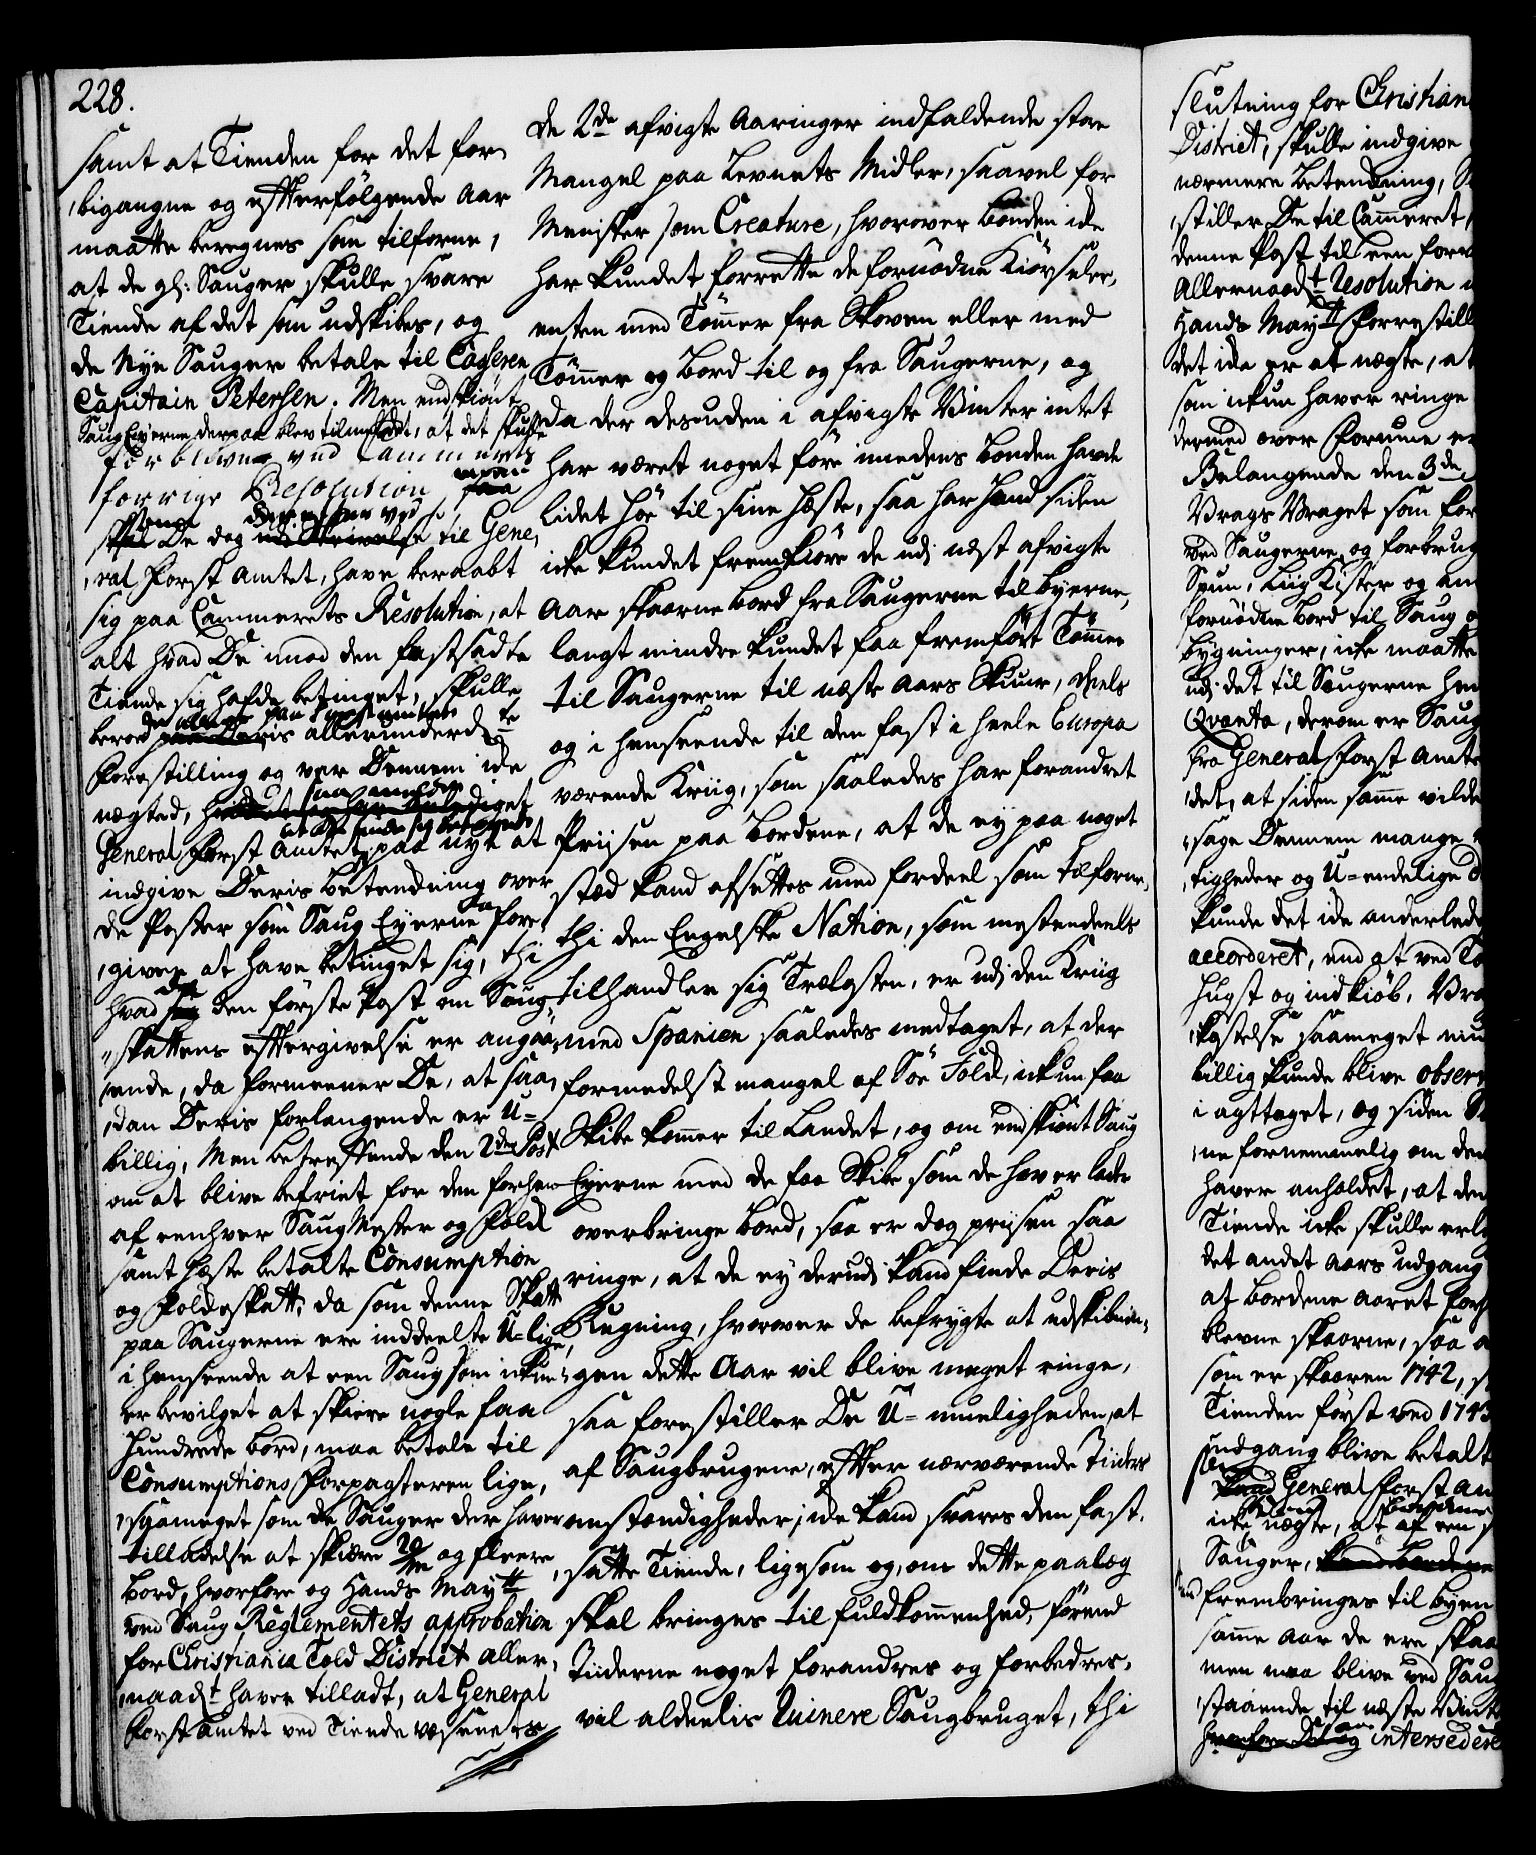 228.
samt at Tienden for det for,
,bigangne og efterfölgende Aar
maatte beregnes som tilforne,
at de gl: Sauger skulle svare
Tiende af det som udskibes, og
de Nye Sauger betale til Casseren
Capitain Petersen. Men endskiönt
Saug Eyerne derpaa blev tilmeldt, at det skulle
forblive ved Cammerets
forrige Resolution,
De dog til Gene,
,ral Forst Amtet, have beraabt
sig paa Cammerets Resolution, at
alt hvad De imod den fastsadte
Tiende sig hafde betinget, skulle
beroe allerunderd:te
Forestilling og var Dennem icke
nægted,
General Forst Amtet paa nye at
indgive Deris Betenckning over
de Poster som Saug Eyerne fore,
,giver at have betinget sig, thi
hvad den förste Post om Saug,
,skattens eftergivelse er angaa,
,ende, da formeener De, at saa,
,dan Deris forlangende er U=
billig, Men betreffende den 2den Post
om at blive befriet for den forhen
af eenhver Saug Mester og Folck
samt Hæste betalte Consumption
og Folckeskatt; da som denne Skatt
paa Saugerne ere inddeelte U-lige,
i henseende at een Saug som ickun
er bevilget at skiere nogle faa
Hundrede bord, maa betale til
Consumptions Forpagteren lige,
,saameget som de Sauger der haver
tilladelse at skiære 20 m og fleere
Bord, hvorfore og Hands May:tt
ved Saug Reglementets approbation
for Christiania Told District aller,
,naad:t haver tilladt, at General
Forst Amtet ved Tiende væsenets
de 2de afvigte Aaringer indfaldende store
Mangel paa Levnets Midler, saavel for
Mennisker som Creature, hvorover Bonden icke
har kundet forrette de fornödne Kiörsler,
enten med Tömmer fra Skoven eller med
Tömmer og Bord til og fra Saugerne, og
da der desuden i afvigte Vinter intet
har været noget före imedens Bonden havde
lidet Höe til sine Hæste, saa har Hand siden
icke kundet fremkiöre de udj næst afvigte
Aar skaarne Bord fra Saugerne til Byerne,
langt mindre kundet faa fremfört Tömmer
til Saugerne til næste Aars Skuur, deels
og i henseende til den fast i heele Europa
værende Kriig, som saaledes har forandret
Priisen paa Bordene, at de ey paa noget
stæd kand afsettes med fordeel som tilforne,
thi den Engelske Nation, som mestendeels
tilhandler sig Trælasten, er udj den Kriig
med Spanien saaledes medtaget, at der
formedelst mangel af Söe Folck, ickun faa
Skibe kommer til Landet, og om endskiönt Saug
Eyerne med de faa Skibe som de haver lader
overbringe Bord, saa er dog priisen saa
ringe, at de ey derudj kand finde Deris
Regning, hvorover de befrygte at udskibnin,
,gen dette Aar vil blive meget ringe,
saa forestiller De U-mueligheden, at
af Saugbrugene, efter nærværende Tiiders
omstændigheder, icke kand svares den fast,
,satte Tiende, ligesom og, om dette paalæg
skal bringes til fuldkommenhed, förend
Tiiderne noget forandres og forbedres,
vil aldeelis Ruinere Saugbruget, thi
slutning for Christian
District, skulle indgive
nærmere Betenckning,
,stiller De til Cammeret
denne Post til een for
Allernaad:t Resolution
Hands May:tt Forrestill
det icke er at nægte, at
som ickun haver ringe
dermed over Formue er
Belangende den 3de
Vrags Vraget som for
ved Saugerne og forbrug
Spun, Liig Kister og an
fornödne Bord til Saug
bygninger, icke maatte
udj det til Saugerne hen
Qvanta, derom er Saug
fra General Forst Amte
det, at siden samme vilde
,sage Dennem mange
,tigheder og U-endelige
kunde det icke anderlede
accorderet, end at ved Tö
Hugst og indkiöb, Vra
kostelse saameget mue
billig kunde blive obser
i agttaget, og siden
,ne fornemmelig om den
haver anholdet, at den
Tiende icke skulle erl
det andet Aars udgang
af Bordene Aaret for
blevne skaarne, saa
som er skaaren 1742,
Tienden först ved 1743
udgang blive betalt
General Forst Am
icke nægte, at af een
Sauger,
frembringes til Byen
samme Aar de ere skaa
men maa blive ved Saug
staaende til næste Vint
intersedere